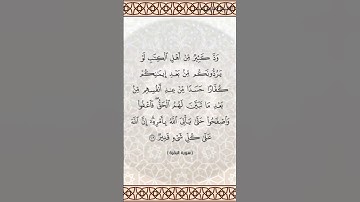 وَدَّ كَثِيرٌ مِّنْ أَهْلِ ٱلْكِتَٰبِ لَوْ
يَرُدُّونَكُم مِّنۢ بَعْدِ إِيمَٰنِكُمْ
كُفَّارًا حَسَدًا مِّنْ عِندِ أَنفُسِهِم مِّنۢ
بَعْدِ مَا تَبَيَّنَ لَهُمُ ٱلْحَقُّ ۖ فَٱعْفُوا۟
وَٱصْفَحُوا۟ حَتَّىٰ يَأْتِىَ ٱللَّهُ بِأَمْرِهِۦٓ ۗ إِنَّ ٱللَّهَ
عَلَىٰ كُلِّ شَىْءٍ قَدِيرٌ ١٠٩
(سورة البقرة)